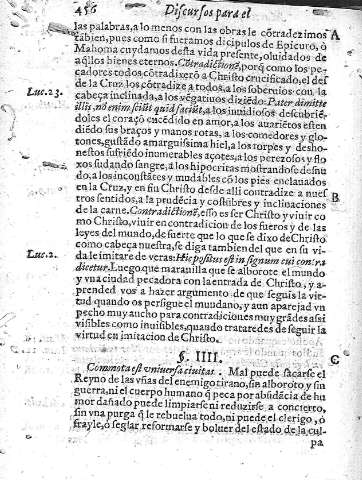 456 Discursos para el
las palabras, a lo menos con las obras le cõtradezimos A
tabien, pues como si fueramos dicipulos de Epicuro, ò
Mahoma cuydamos desta vida presente, oluidados de
aq̃llos bienes eternos. Cõtradictionē, porq̃ como los pe-
cadores todos cõtradixerõ a Christo crucificado, el des
de la Cruz los cõtradize a todos, a los soberuios con la
Luc.23. cabeça inclinada, a los vẽgatiuos diziẽdo: Pater dimitte
illis, nõ enim sciũt quid faciũt, a los inuidiosos descubriẽ-
doles el coraçõ encẽdido en amor, a los auariẽtos estẽn
diẽdo sus braços y manos rotas, a los comedores y glo-
tones, gustãdo amarguissima hiel, a los torpes y desho-
nestos sufriẽdo inumerables açotes, a los perezosos y flo-
xos sudando sangre, a los hipocritas mostrandose desnu-
do, a los inconstãtes y mudables cõ los piès enclauados
en la Cruz, y en fin Christo desde alli contradize a nues B
tros sentidos, a la prudẽcia y costũbres y inclinaciones
de la carne. Contradictionē, esso es ser Christo y viuir co
mo Christo, viuir en contradicion de los fueros y de las
leyes del mundo, de suerte que lo que se dixo de Christo
como cabeça nuestra, se diga tambien del que en su vi-
Luc.2. da le imitare de veras: Hic positus est in signum cui contra
dicetur. Luego que marauilla que se alborote el mundo
y vna ciudad pecadora con la entrada de Christo, y a-
prended vos a hazer argumento de que seguis la vir-
tud quando os persigue el mundano, y aun aparejad vn
pecho muy ancho para contradiciones muy grãdes assi
visibles como inuisibles, quando trataredes de seguir la
virtud en imitacion de Christo.
§. IIII. C
Commota est vniuersa ciuitas. Mal puede sacarse el
Reyno de las vñas del enemigo tirano, sin alboroto y sin
guerra, ni el cuerpo humano q̃ peca por abũdãcia de hu
mor dañado puede limpiarse ni reduzirse a concierto,
sin vna purga q̃ le rebuelua todo, ni puede el clerigo, ò
frayle, ò seglar reformarse y boluer del estado de la cul-
pa